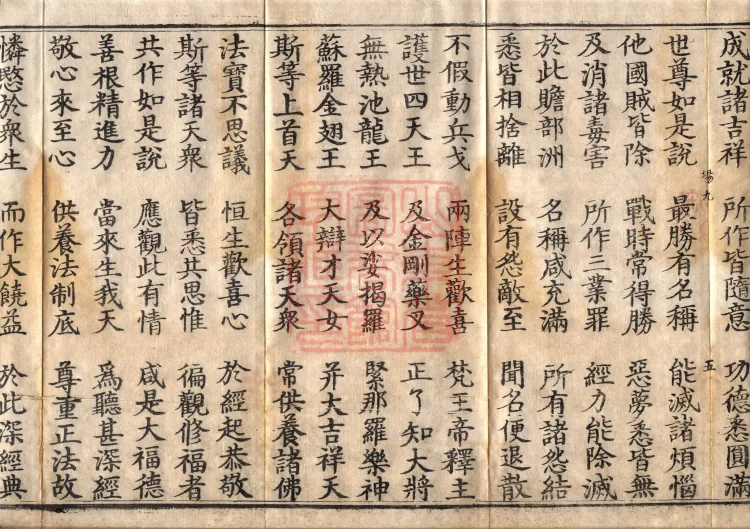 成就諸吉祥 所作皆隨意 功德悉圓滿
世尊如是說 最勝有名稱 能滅諸煩惱
他國賊皆除 戰時常得勝 惡夢悉皆無
及消諸毒害 所作三業罪 經力能除滅
於此贍部洲 名稱咸充滿 所有諸怨結
悉皆相捨離 設有怨敵至 聞名便退散
不假動兵戈 兩陣生歡喜 梵王帝釋主
護世四天王 及金剛藥叉 正了知大將
無熱池龍王 及以娑揭羅 緊那羅樂神
蘇羅金翅王 大辯才天女 并大吉祥天
斯等上首天 各領諸天衆 常供養諸佛
法寶不思議 恒生歡喜心 於經起恭敬
斯等諸天衆 皆悉共思惟 徧觀修福者
共作如是說 應觀此有情 咸是大福德
善根精進力 當來生我天 爲聽甚深經
敬心來至心 供養法制底 尊重正法故
憐愍於衆生 而作大饒益 於此深經典
場九
五